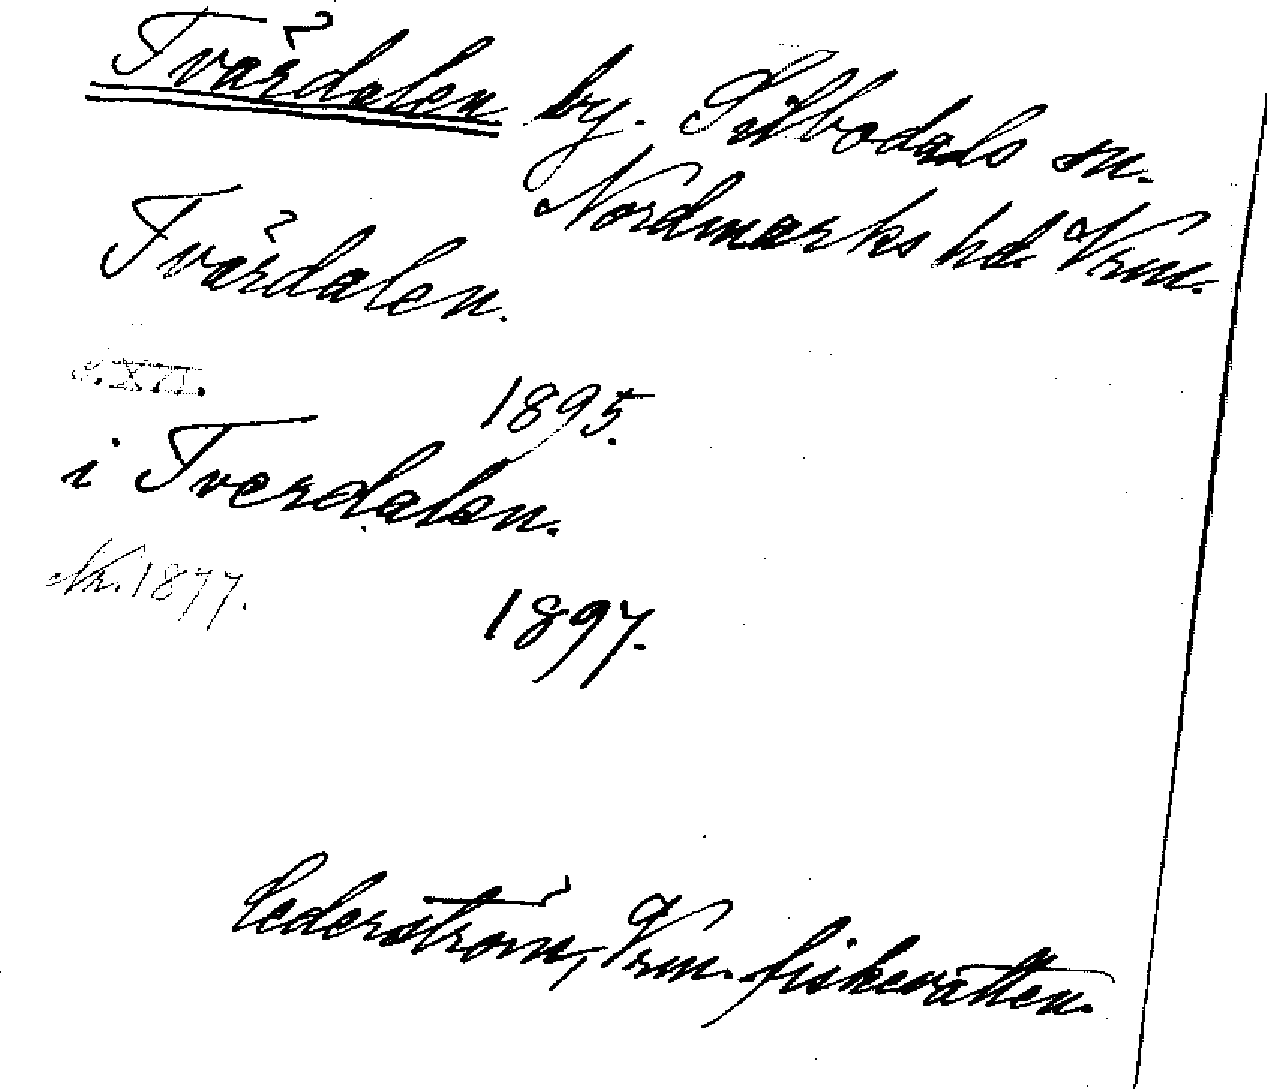 Tvärdalen by. Silbodals sn.
Nordmarks hd. Vrm.
Tvärdalen.
1895.
i Tverdalen.
Nr. 1877.
1897.
Cederström, Vrm. fiskevatten.